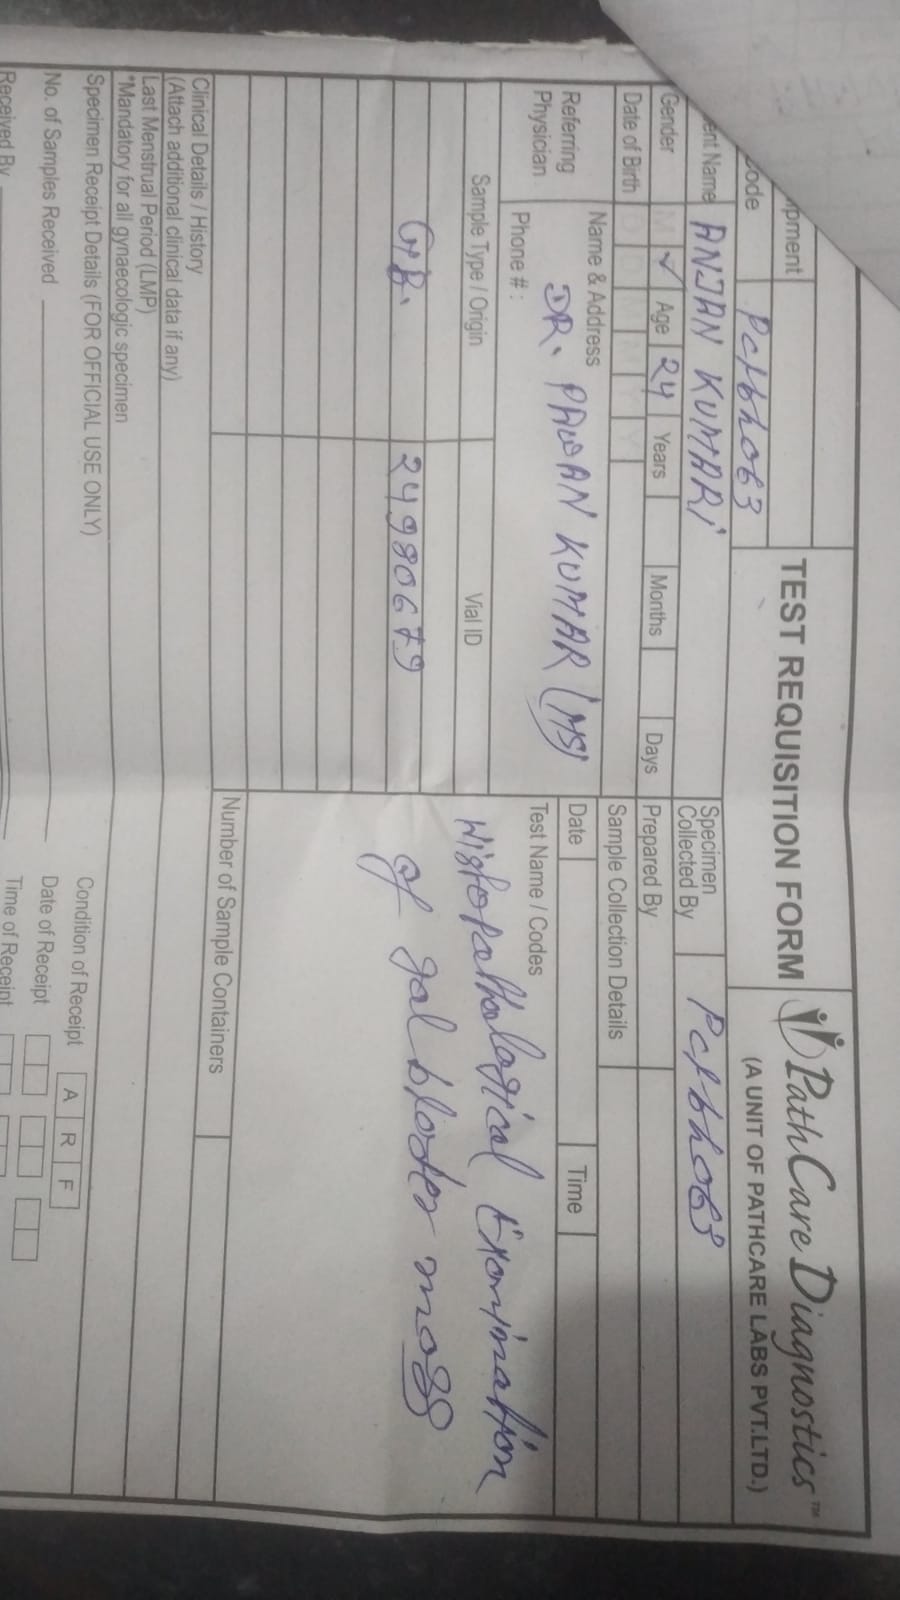 TEST REQUISITION FORM
PathCare Diagnostics™
(A UNIT OF PATHCARE LABS PVT.LTD.)
ipment
ode
ent Name ANJAN KUMARI
Gender M ✓ Age 24 Years Months Days
Date of Birth D D M M Y Y
Referring Physician
Name & Address
DR. PAWAN KUMAR (MS)
Phone # :
Specimen Collected By
Prepared By
Sample Collection Details
Date Time
Test Name / Codes
Histopathological Examination
of gal blader mass
Sample Type / Origin Vial ID
GB. 24980679
Number of Sample Containers
Clinical Details / History
(Attach additional clinical data if any)
Last Menstrual Period (LMP)
*Mandatory for all gynaecologic specimen
Specimen Receipt Details (FOR OFFICIAL USE ONLY)
No. of Samples Received
Received By
Condition of Receipt A R F
Date of Receipt
Time of Receipt